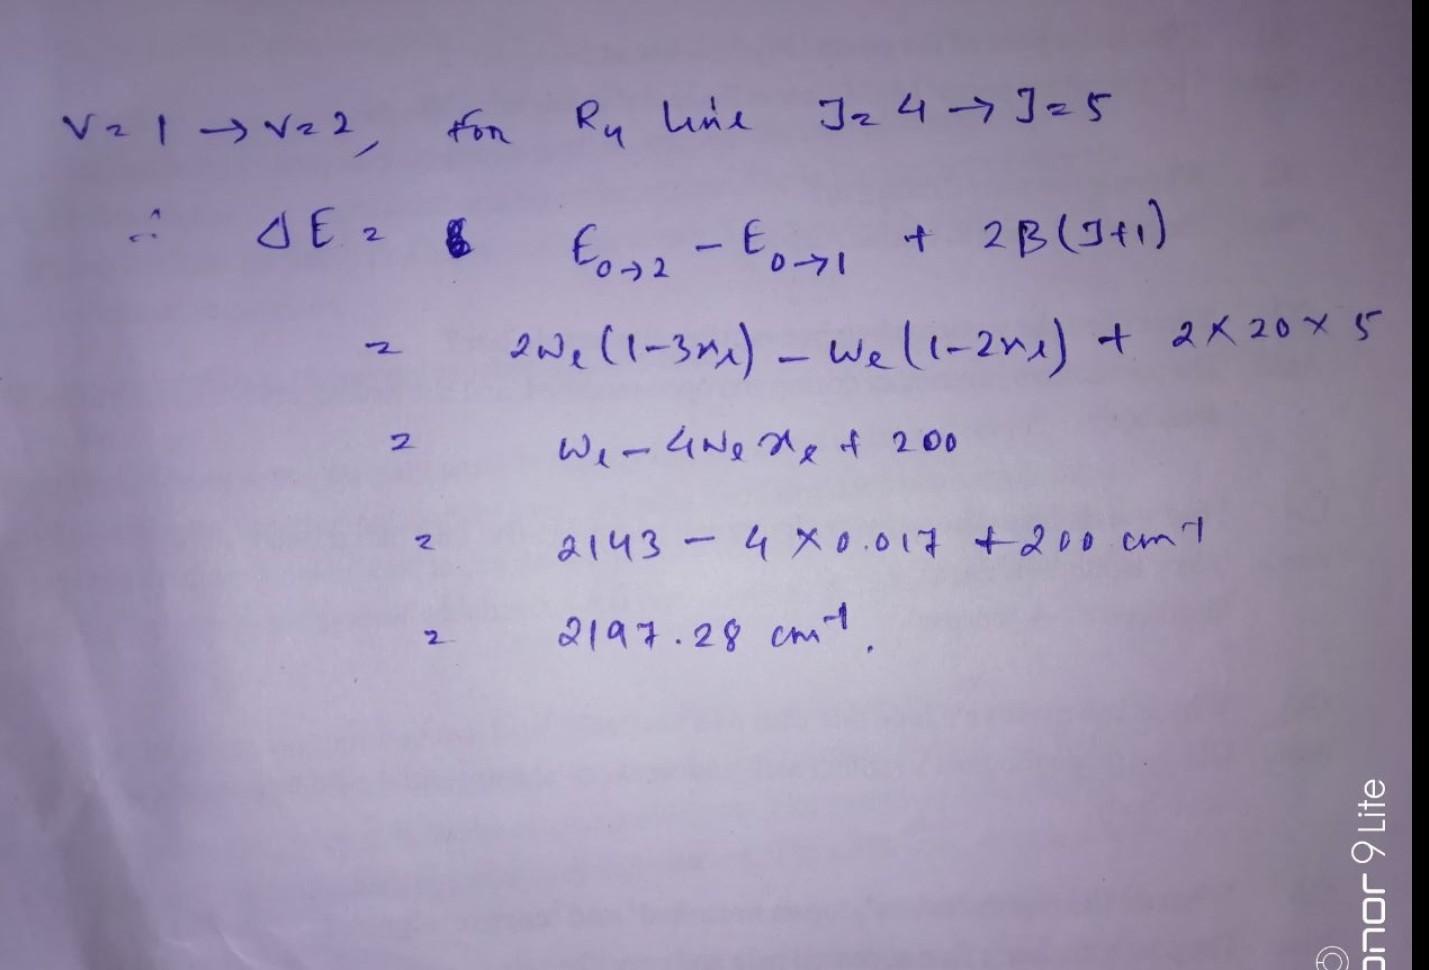 V=1 → V=2, for R4 line J=4 → J=5
∴ ΔE = E0→2 - E0→1 + 2B(J+1)
= 2We(1-3xe) - We(1-2xe) + 2×20×5
= We - 4Wexe + 200
= 2143 - 4×0.017 + 200 cm-1
= 2197.28 cm-1.
onor 9 Lite